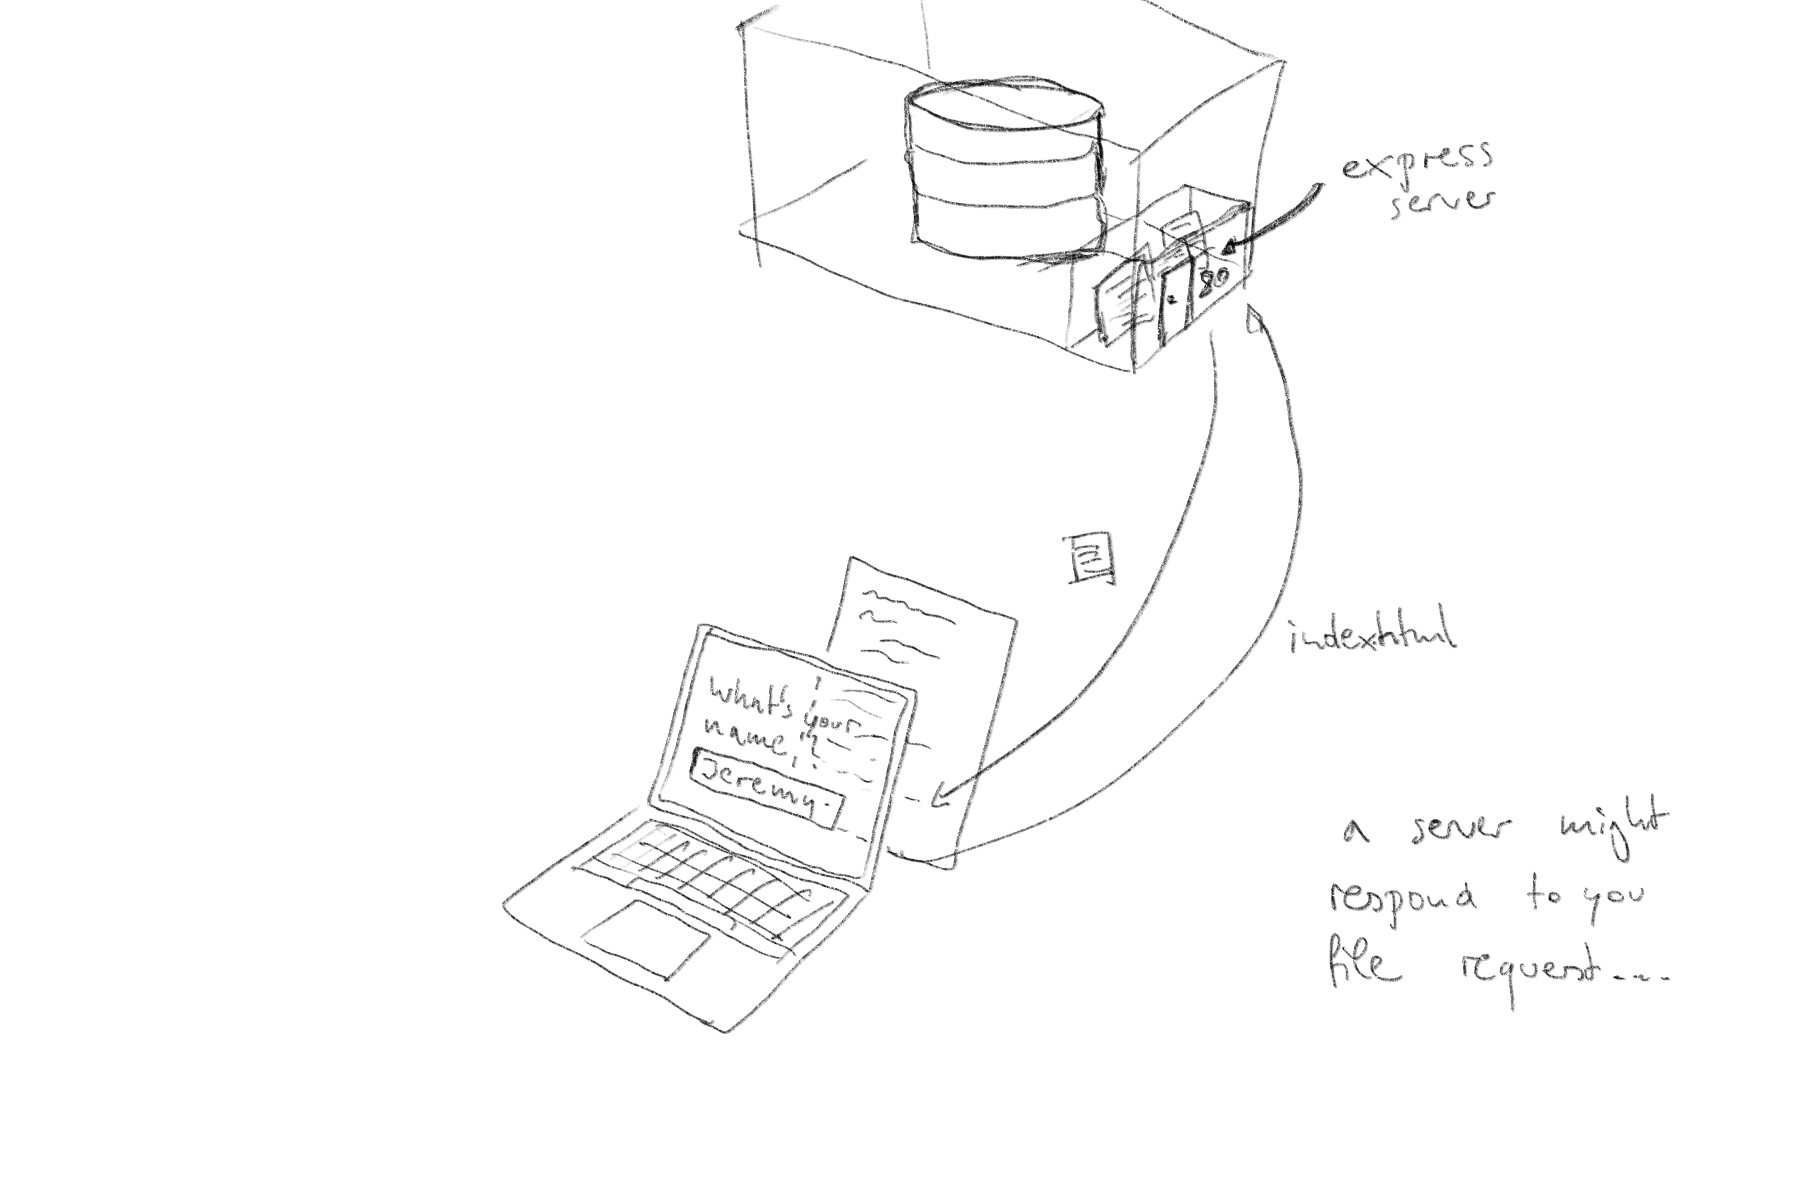 express
server
80
index.html
what's your
name?
Jeremy
a server might
respond to you
file request....